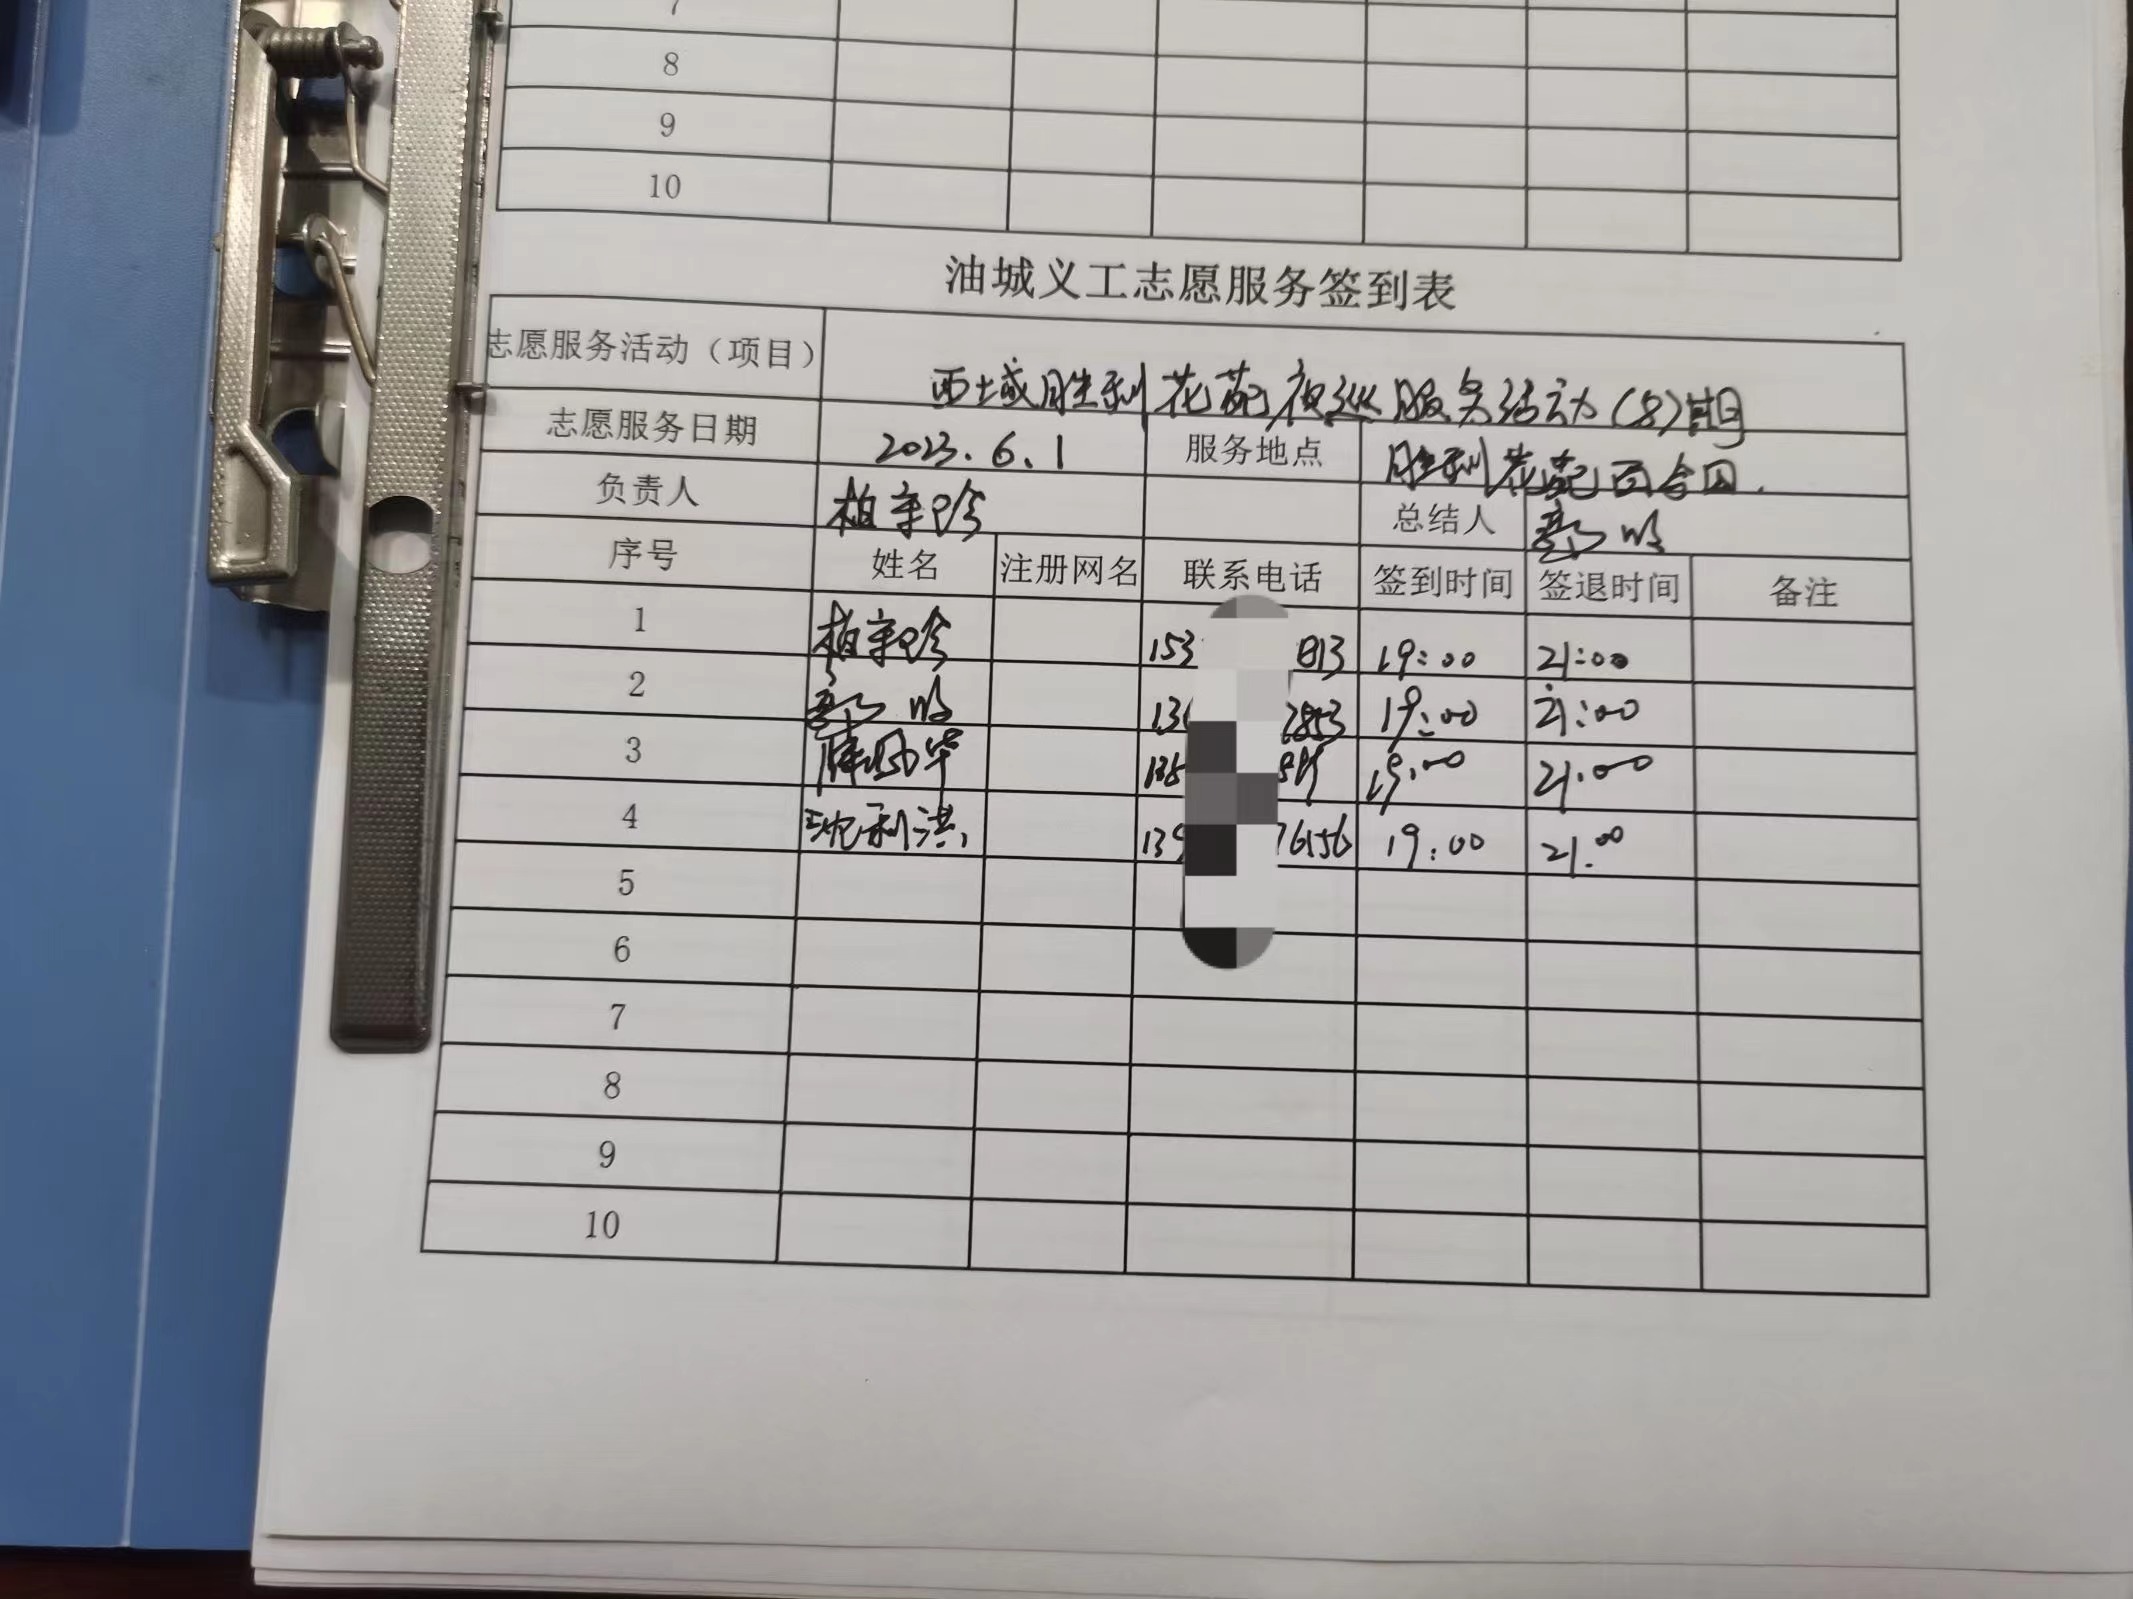 7
8
9
10
油城义工志愿服务签到表
志愿服务活动（项目） 西城胜利花苑夜巡服务活动（8）期
志愿服务日期 2023.6.1 服务地点 胜利花苑百合园.
负责人 总结人
序号 姓名 注册网名 联系电话 签到时间 签退时间 备注
1 153 813 19:00 21:00
2 2853 19:00 21:00
3 19:00 21:00
4 沈利洪 139 76156 19:00 21:00
5
6
7
8
9
10